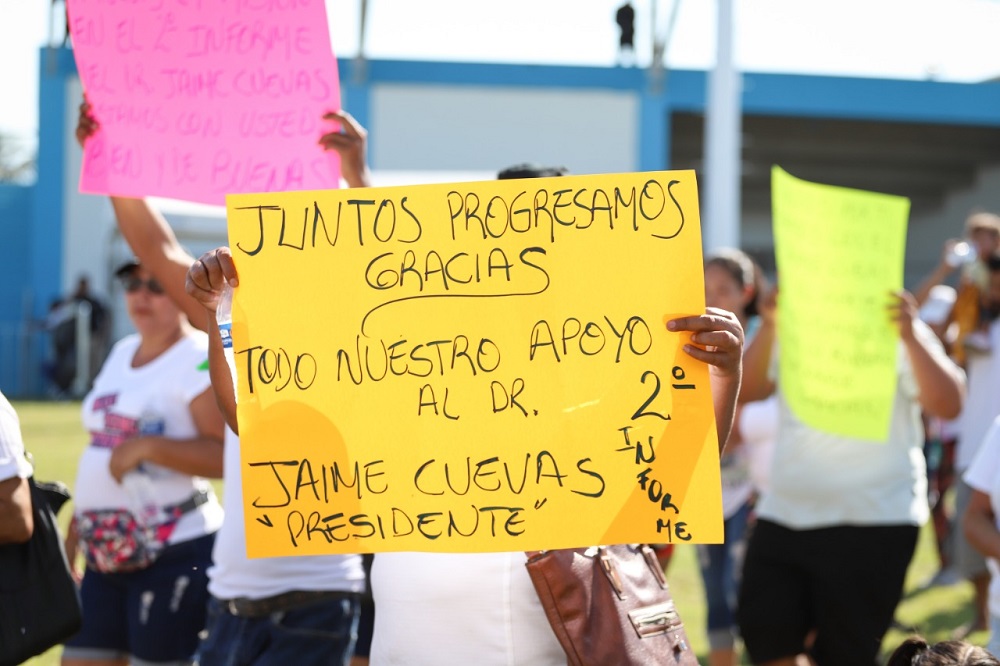 EN EL 2º INFORME
DEL DR. JAIME CUEVAS
ESTAMOS CON USTED
BIEN Y DE BUENAS
JUNTOS PROGRESAMOS
GRACIAS
TODO NUESTRO APOYO
AL DR.
JAIME CUEVAS
"PRESIDENTE"
2º
INFORME